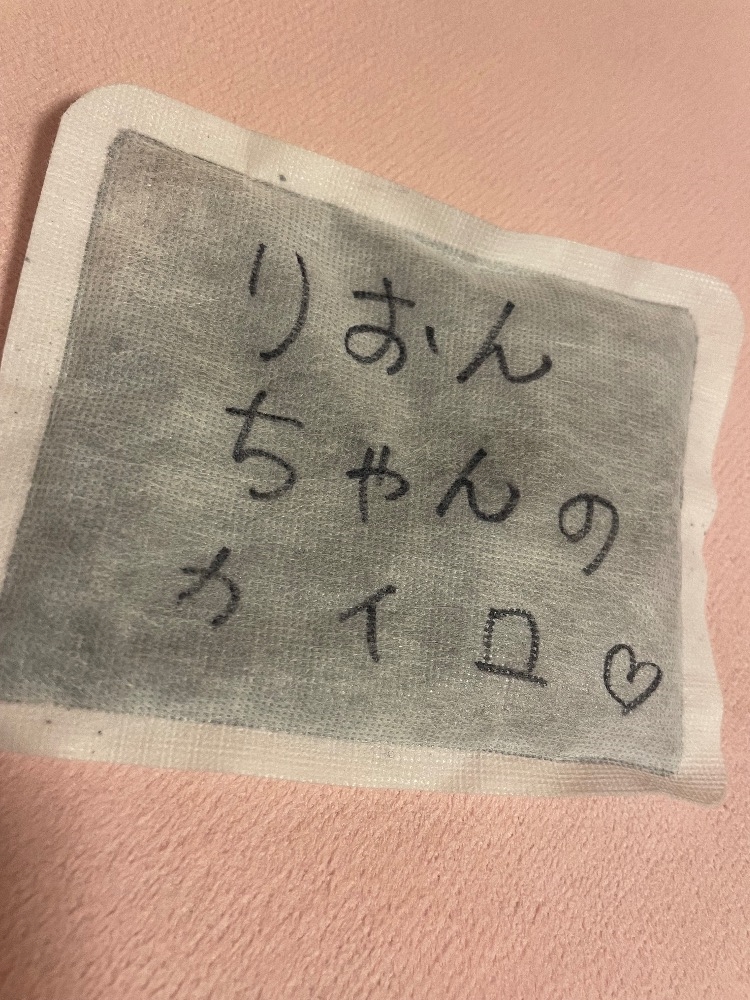 りおん
ちゃんの
カイロ♡